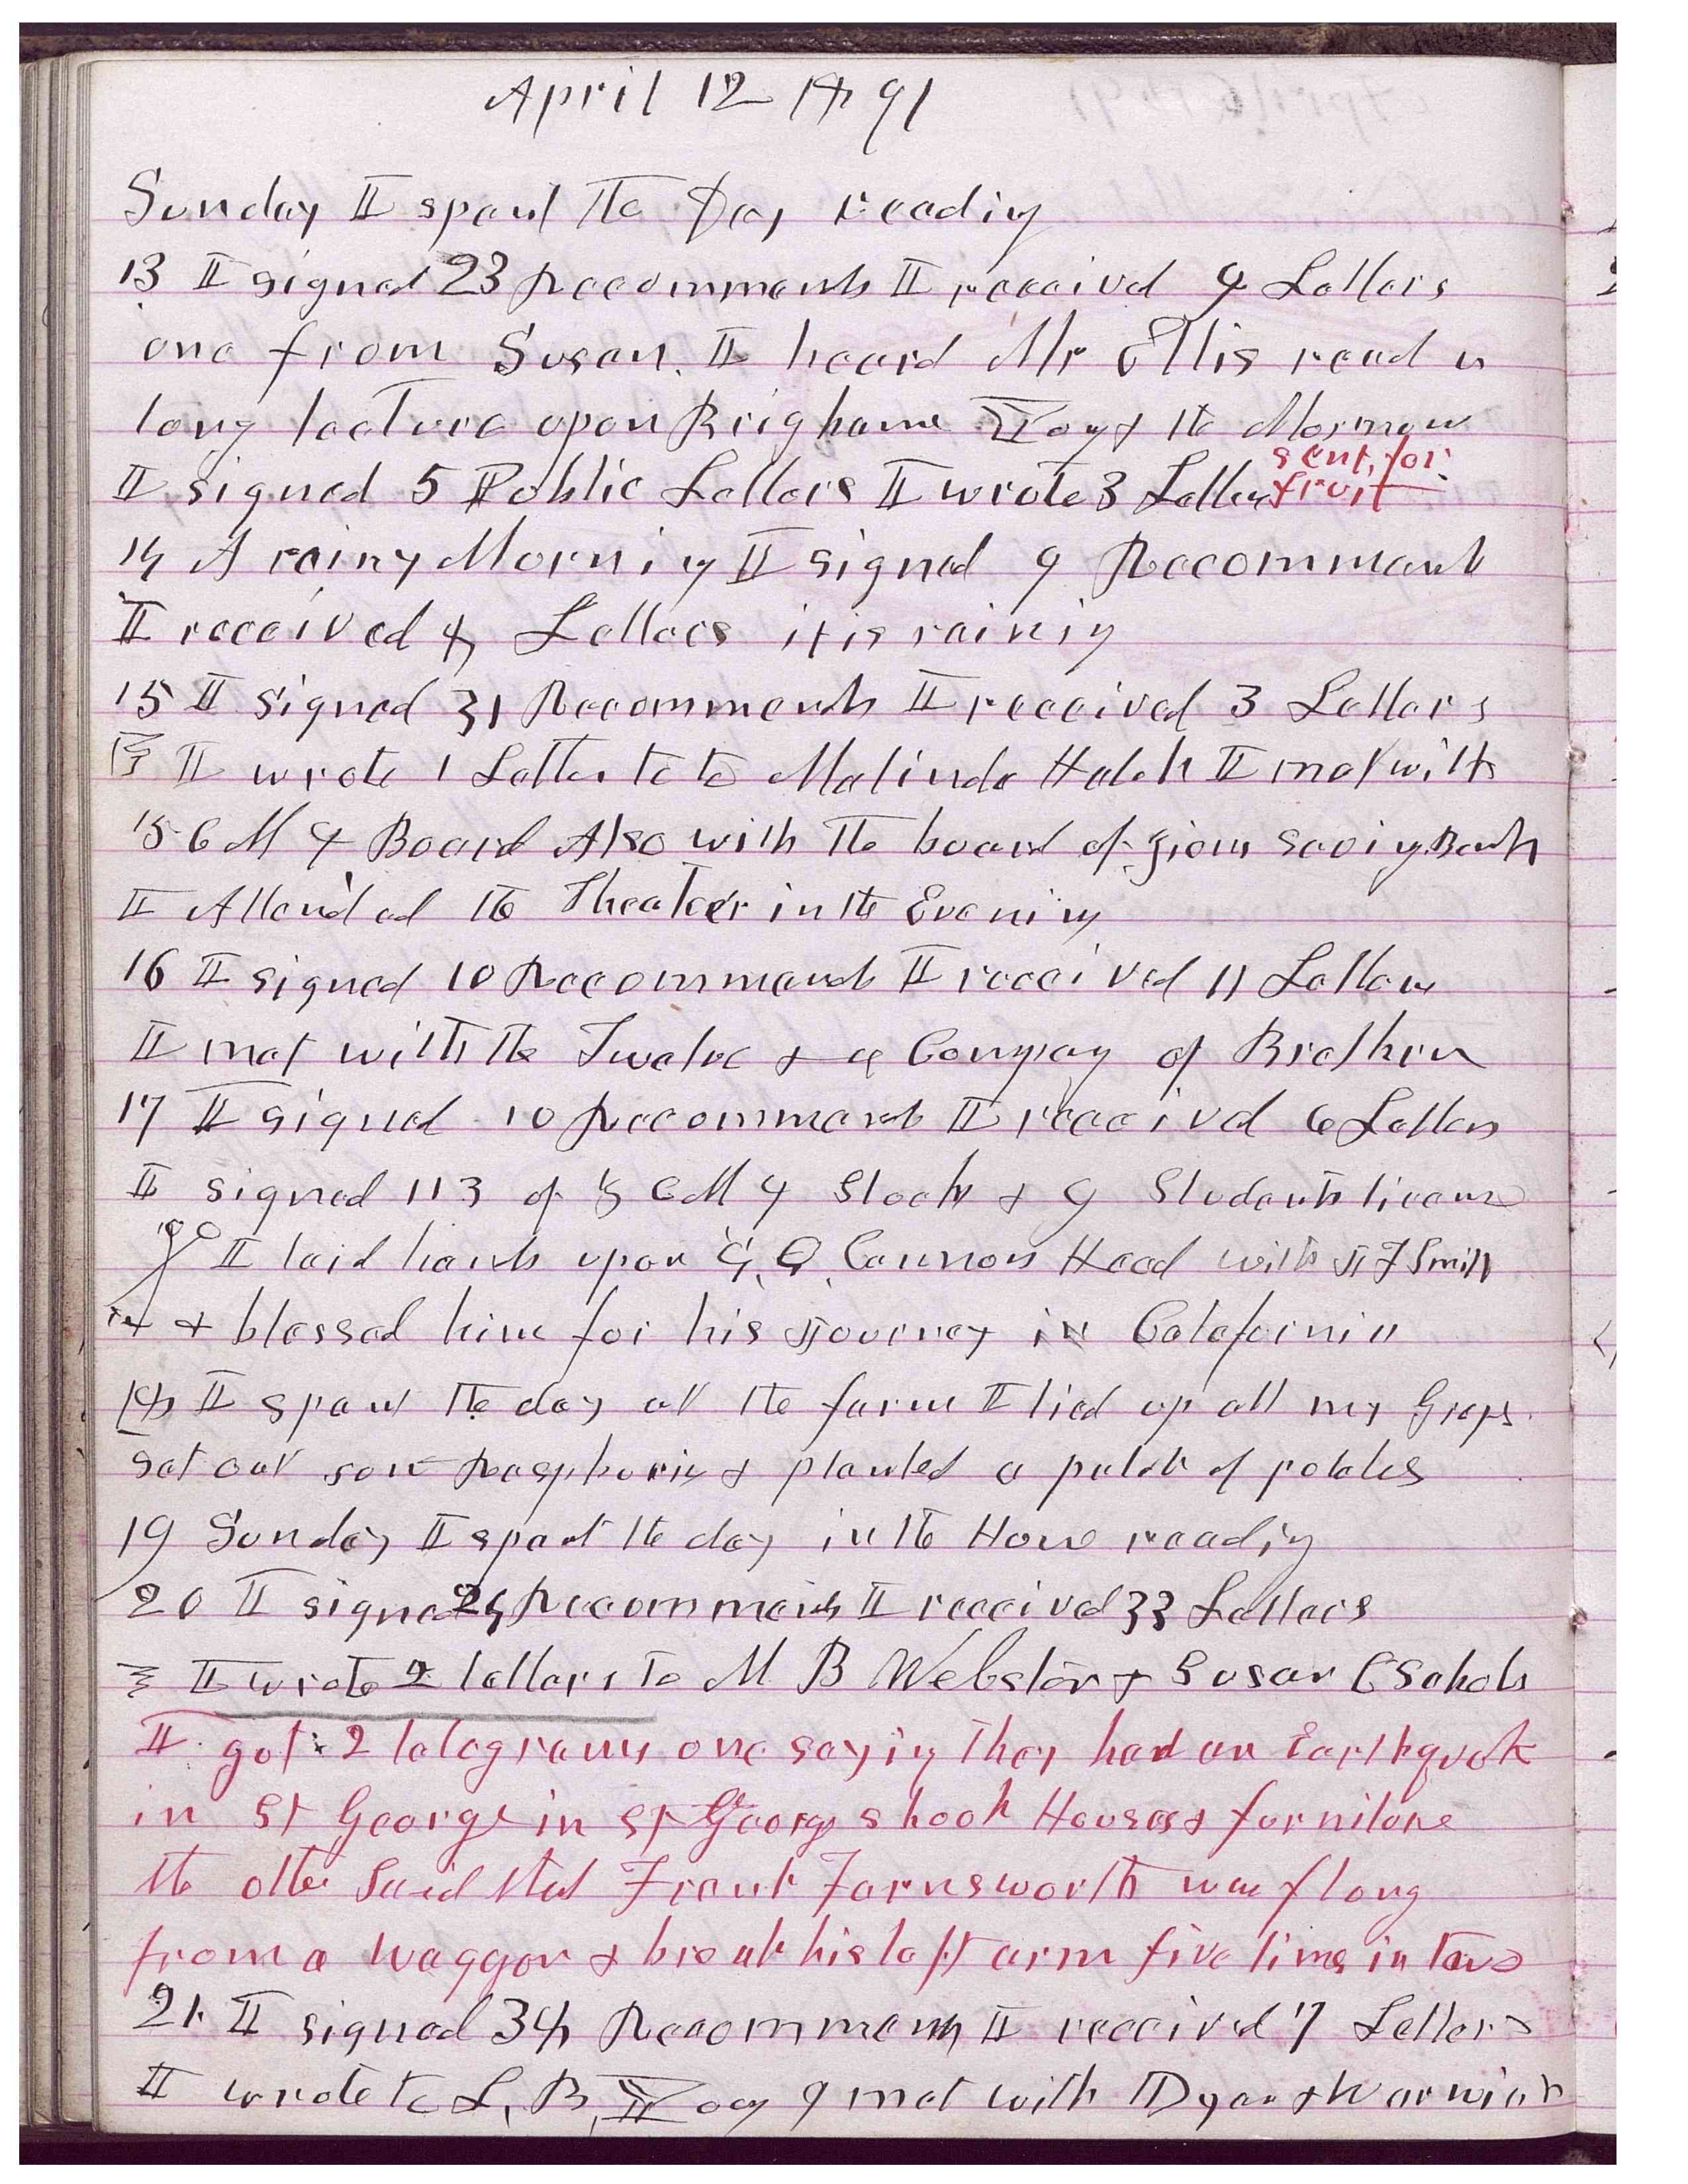 April 12 1891
Sunday I spent the Day reading
13 I signed 23 Recommends I received 9 Letters
one from Susan. I heard Mr Ellis read a
long lecture upon Brigham Young & the Mormon
sent for
I signed 5 Public Letters I wrote 3 Letters fruit
14 A rainy Morning I signed 9 Recommends
I received 8 Letters it is raining
15 I signed 31 Recommends I received 3 Letters
I wrote 1 Letter to to Malinda Hatch I met with
Z C M I Board Also with the board of Zions Saving Bank
I Attended the Theater in the Evening
16 I signed 10 Recommends I received 11 Letters
I met with the Twelve & a Company of Brethren
17 I signed 10 Recommends I received 6 Letters
I signed 113 of Z C M I Stock & 9 Students licens
I laid hands upon G. Q. Cannons Head with J F Smith
& blessed him for his Journey in Calafornia
18 I spent the day at the farm I tied up all my Graps
set out some Raspberries & planted a patch of potatoes
19 Sunday I spent the day in the House reading
20 I signed 24 Recommends I received 33 Letters
I wrote 2 letters to M B Webster & Susan C Scholes
I got 2 telegrams one saying they had an Earthquak
in St George in St George shook Houses & furniture
the other Said that Frank Farnsworth was flong
from a waggon & broak his left arm five times in two
21. I signed 38 Recommends I received 7 Letters
I wrote to L, B, Young & met with Dyer &